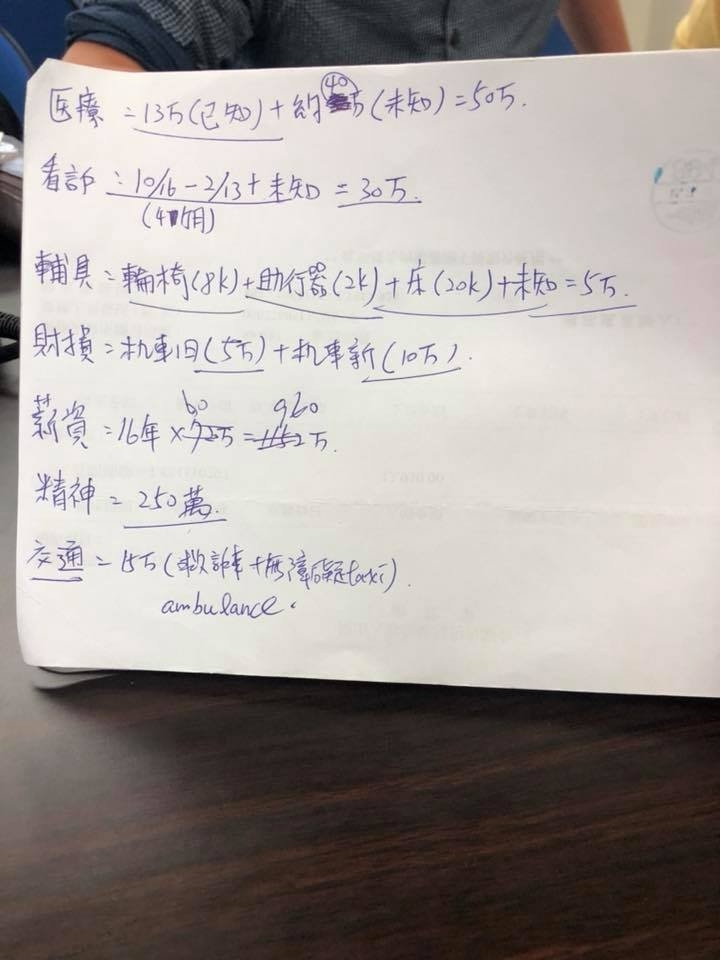 医療 = 13万(已知) + 約40万(未知) = 50万.
看訴 = 10/16 - 2/13 + 未知 = 30万.
(4個月)
輔具 = 輪椅(8k) + 助行器(2k) + 床(20k) + 未知 = 5万.
財損 = 机車旧(5万) + 机車新(10万).
薪資 = 16年 × 60 = 960万.
精神 = 250萬.
交通 = 15万(救護車 + 無障礙taxi).
ambulance.